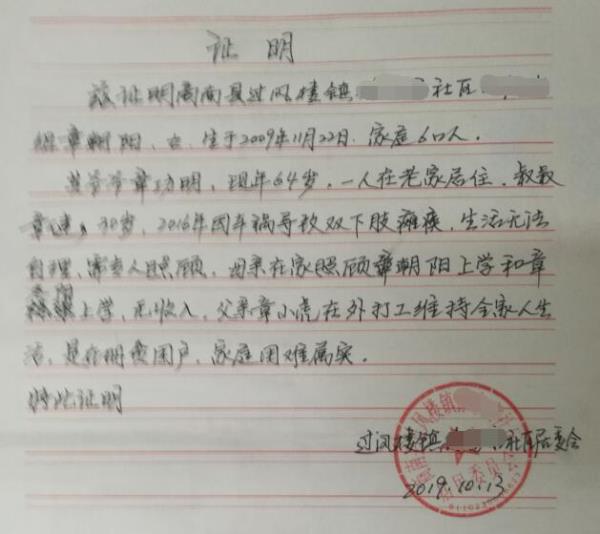 证 明
兹证明商南县过风楼镇 社区
组章朝阳、女、生于2009年11月22日、家庭6口人.
其爷爷章功明，现年64岁，一人在老家居住，叔叔
章 ，30岁，2016年因车祸导致双下肢瘫痪，生活无法
自理，需专人照顾，母亲在家照顾章朝阳上学和章
上学，无收入，父亲章小虎在外打工维持全家人生
活，是在册贫困户，家庭困难属实.
特此证明
过风楼镇 社区居委会
2019.10.13